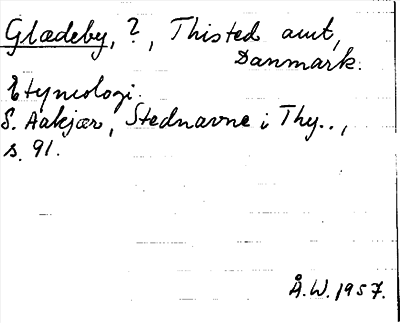 Glædeby, ?, Thisted amt,
Danmark.
Etymologi.
S. Aakjær, Stednavne i Thy..,
s. 91.
Å.W. 1957.